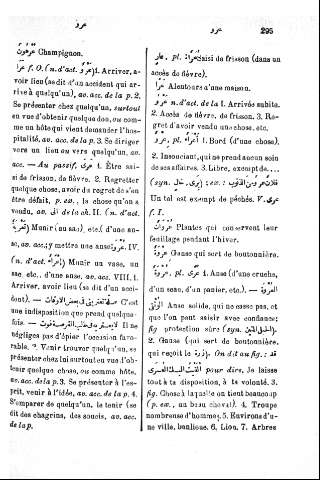 عرو عرو 295
Champignon.
f. O. (n. d'act. عَرْو) 1. Arriver, a-
voir lieu (se dit d'un accident qui ar-
rive à quelqu'un), av. acc. de la p. 2.
Se présenter chez quelqu'un, surtout
en vue d'obtenir quelque don, ou com-
me un hôte qui vient demander l'hos-
pitalité, av. acc. de la p. 3. Se diriger
vers un lieu ou vers quelqu'un, av.
acc. — Au passif, عُرِىَ 1. Être sai-
si de frisson, de fièvre. 2. Regretter
quelque chose, avoir du regret de s'en
être défait, p. ex., la chose qu'on a
vendu, av. de la ch. II. (n. d'act.
Munir (au sac), etc.) d'une an-
se, av. acc.; y mettre une anse. IV.
(n. d'act. Munir un vase, un
sac, etc., d'une anse, av. acc. VIII. 1.
Arriver, avoir lieu (se dit d'un acci-
dent). — C'est
une indisposition que prend quelque-
fois. — Il ne
négliges pas d'épier l'occasion favo-
rable. 2. Venir trouver quelqu'un, se
présenter chez lui surtout en vue d'ob-
tenir quelque chose, ou comme hôte,
av. acc. de la p. 3. Se présenter à l'es-
prit, venir à l'idée, av. acc. de la p. 4.
S'emparer de quelqu'un, le tenir (se
dit des chagrins, des soucis, av. acc.
de la p.
pl. Saisi de frisson (dans un
accès de fièvre).
Alentours d'une maison.
عرو n. d'act. de la I. Arrivée subite.
2. Accès de fièvre, de frisson. 3. Re-
gret d'avoir vendu une chose, etc.
عرو, pl. 1. Bord (d'une chose).
2. Insouciant, qui ne prend aucun soin
de ses affaires. 3. Libre, exempt de...
(syn. خلى); ex.:
Un tel est exempt de péchés. V. عرى
f. I.
Plantes qui conservent leur
feuillage pendant l'hiver.
Ganse qui sert de boutonnière.
عروة, pl. عرى 1. Anse (d'une cruche,
d'un seau, d'un panier, etc.). —
Anse solide, qui ne casse pas, et
que l'on peut saisir avec confiance;
fig. protection sûre (syn.
2. Ganse (qui sert de boutonnière,
qui reçoit le On dit au fig.:
pour dire, Je laisse
tout à ta disposition, à ta volonté. 3.
fig. Chose à laquelle on tient beaucoup
(p. ex., au beau cheval). 4. Troupe
nombreuse d'hommes. 5. Environs d'u-
ne ville, banlieue. 6. Lion. 7. Arbres